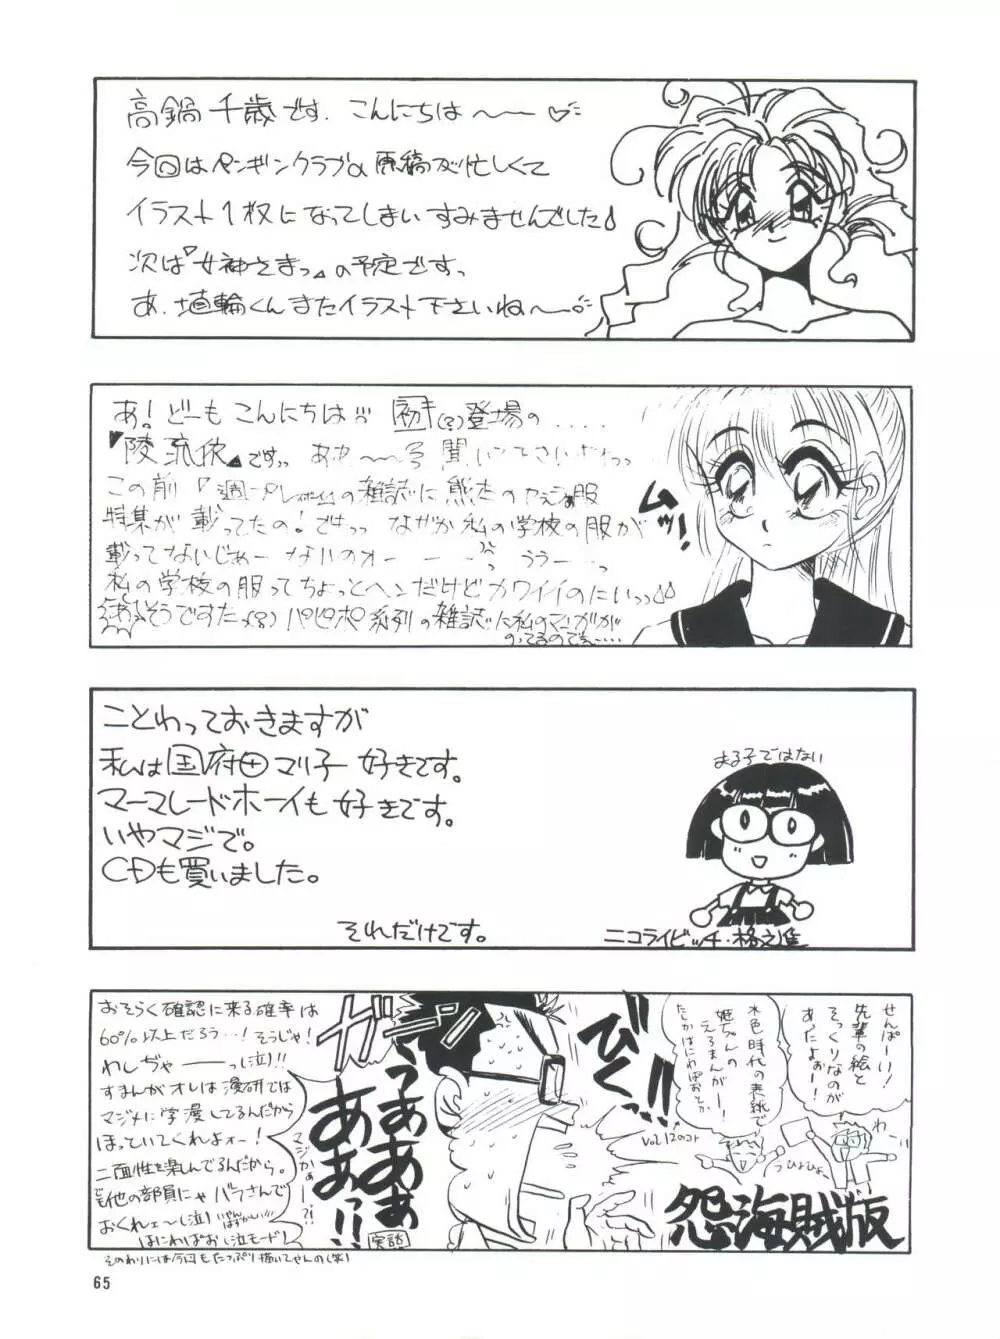 高鍋千歳です. こんにちは〜〜♡
今回はペンギンクラブの原稿が忙しくて
イラスト1枚になってしまいすみませんでした♪
次は『女神さまっ』の予定ですっ
あ. 埴輪くんまたイラスト下さいね〜〜
あ!どーもこんにちは!! 初(?)登場の.....
です。 あ
この前『週一プレイボーイ』の雑誌に
服
特集が載ってたの!でもっっ なぜか私の学校の服が
載ってないじゃーないのォーーーっ ううーーっ
私の学校の服ってちょっとヘンだけどカワイイのにいっっ♪♪
あ、そうですた(?) パピポ系列の雑誌に私のマンガが
のってるのでえ……
ムッ!
ことわっておきますが
私は国府田マリ子好きです。
マーマレードボーイも好きです。
いやマジで。
CDも買いました。
それだけです。
まる子ではない
ニコライビッチ・格之進
せんぱーい!
先輩の絵と
そっくりなのが
あったよぉー!
水色時代の表紙で
姫ちゃんの
えろまんがー!
たしかはにわばおとか
Vol 12のコト
わーい
っひょひょ
怨海賊版
びくっ
ガガーン
うあああぁ
ああぁ!!
マジかぁー!?
実話
おそらく確認に来る確率は
60%以上だろう…!そうじゃ!
わしぢゃーーーっ(泣)!!
すまんがオレは漫研では
マジメに学漫してるんだから
ほっていてくれよォー!
二面性を楽しんでるんだから。
でも他の部員にゃバラさんで
おくれェ〜(泣) いやんはずかしい!!
はにわばお(泣モード)
そのわりには今回もたっぷり描いてやんの(笑)
65